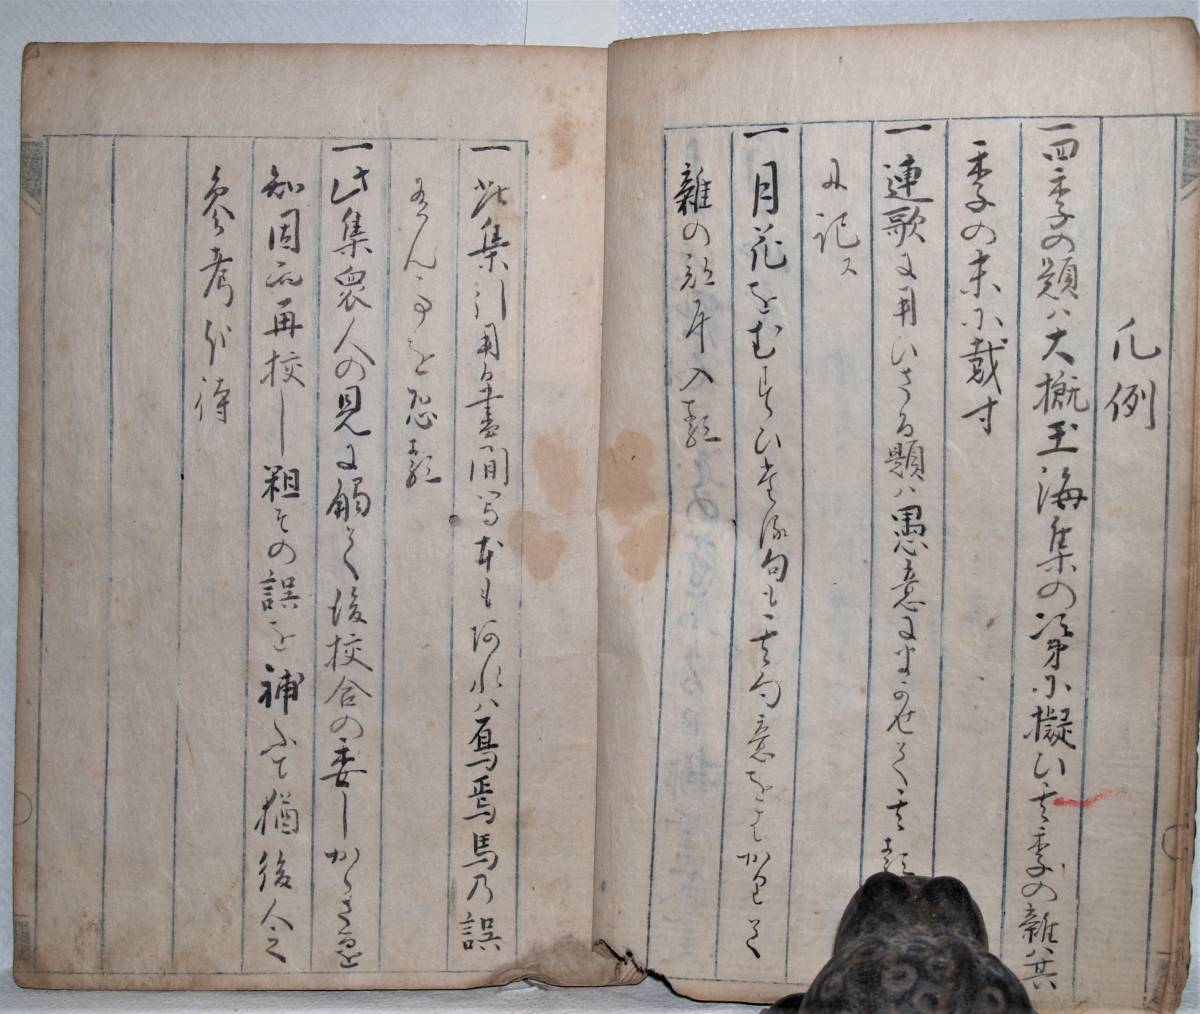 凡例
一四季の題ハ大概玉海集の次第に擬ひ其季の雑ハ其
季の末に載す
一連歌に用ひさる題ハ愚意にまかせて其
に記ス
一月花をむすひたる句も其句意をもかりて
雑の部に入
一此集引用る書間写本も
ハ烏焉馬乃誤
あらん事を恐
一此集衆人の見に触て後校合の委しからさるを
知因而再校し粗その誤を補ふて猶後人之
参考を待